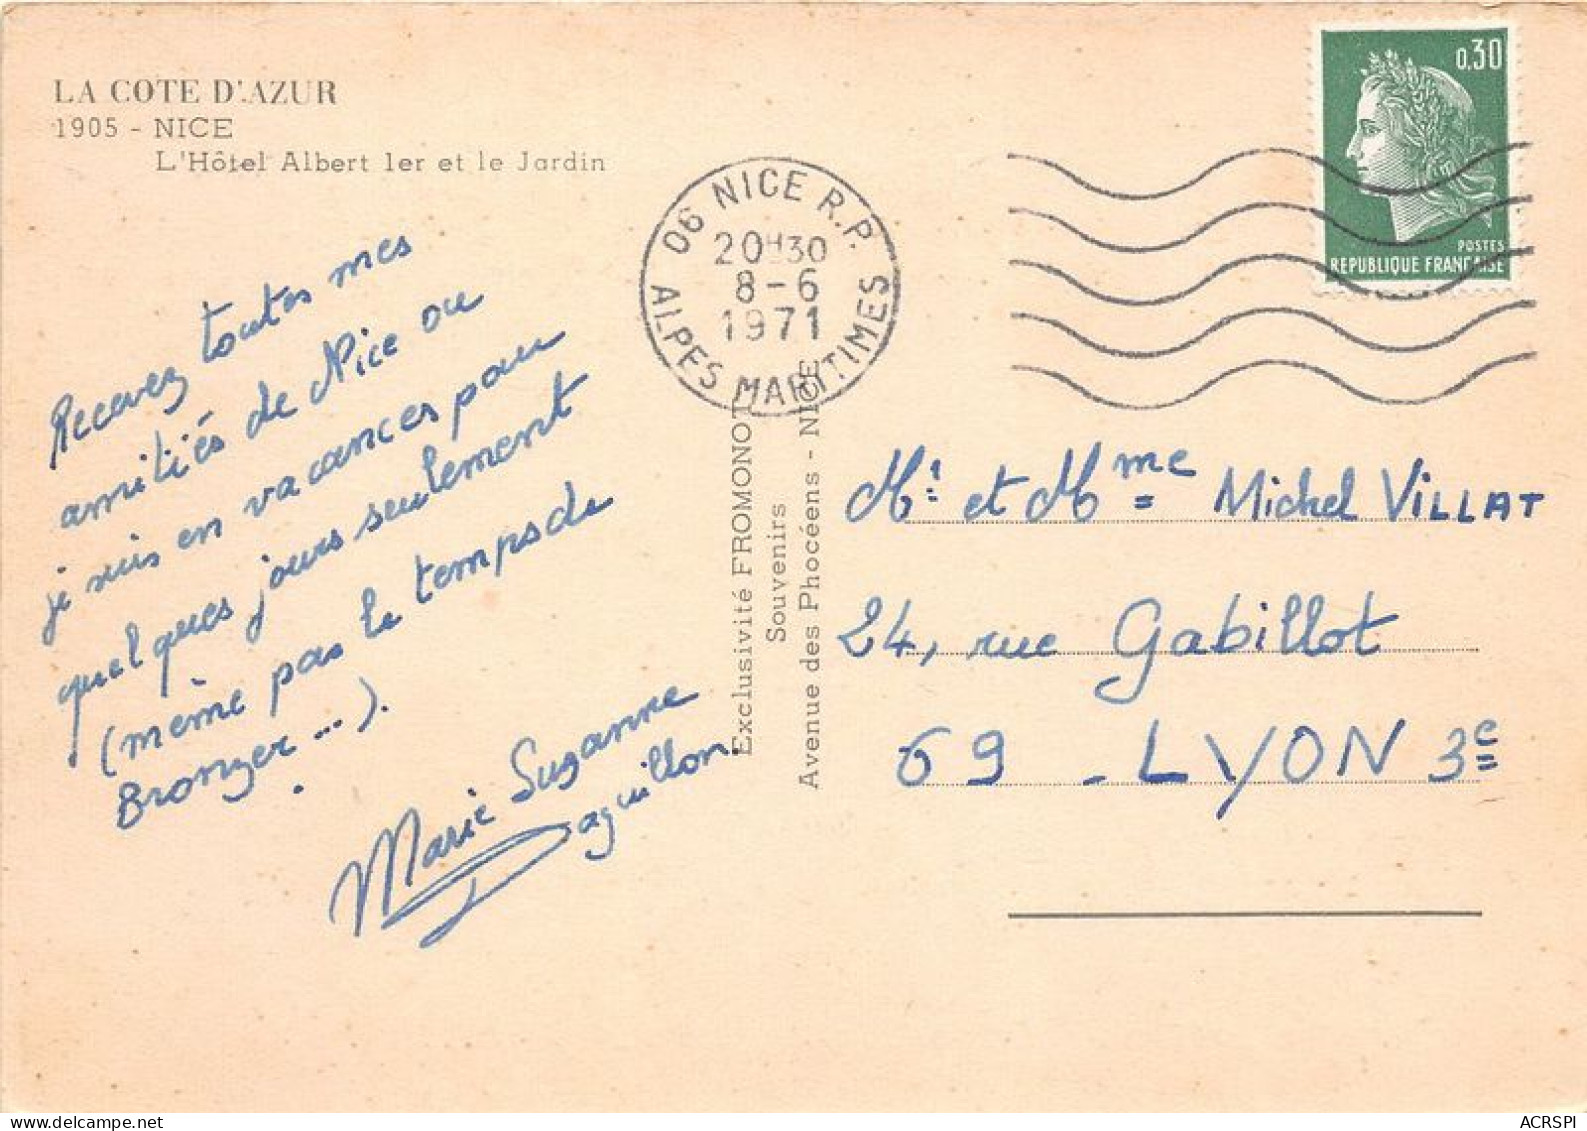 LA COTE D'AZUR
1905 - NICE
L'Hôtel Albert 1er et le Jardin
Recevez toutes mes
amitiés de Nice ou
je suis en vacances pour
quelques jours seulement
(même pas le temps de
Bronzer...).
Marie Suzanne
Daguillon
06 NICE R.P.
20H30
8-6
1971
ALPES MARITIMES
Exclusivité FROMONOT
Souvenirs
Avenue des Phocéens - NICE
0,30
POSTES
REPUBLIQUE FRANÇAISE
Mr et Mme Michel VILLAT
24, rue Gabillot
69 - LYON 3e
delcampe.net
ACRSPI